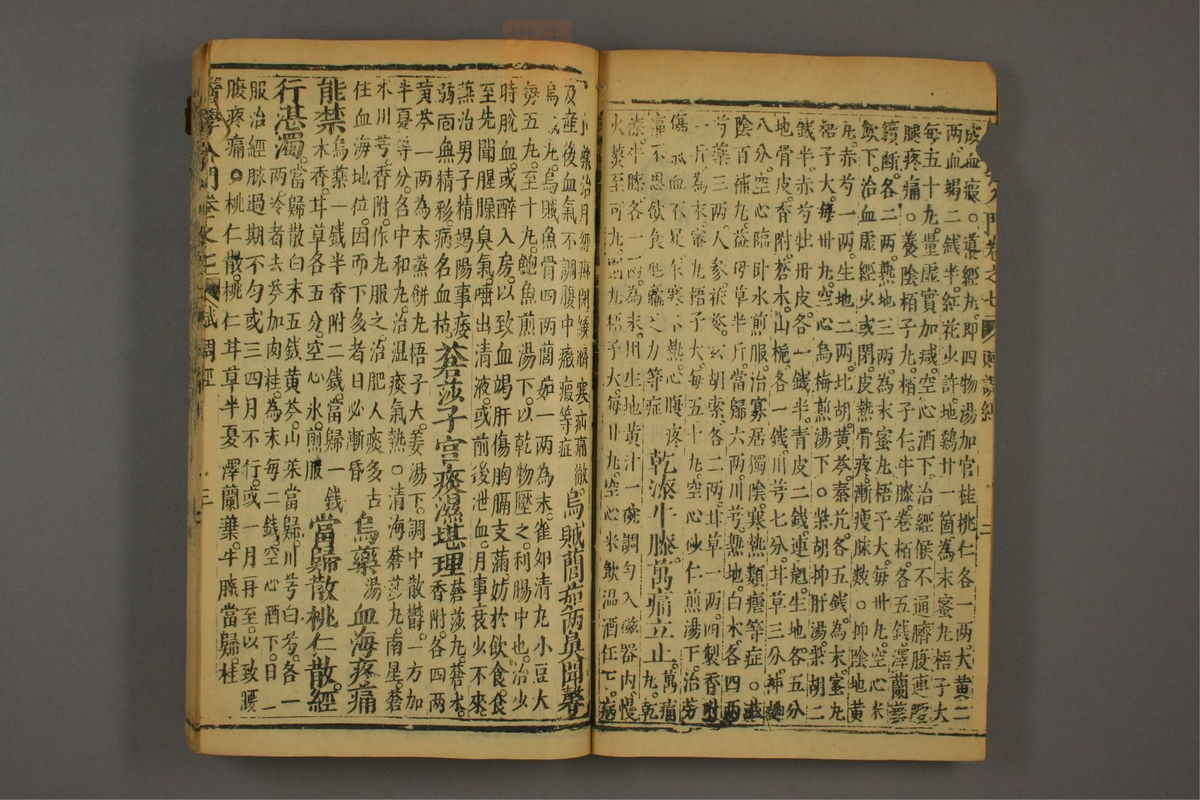 成血瘕。通經丸即四物湯加官桂桃仁各一兩大黃二
兩血竭二錢半紅花少許地鷄廿一箇為末蜜丸梧子大
每五十丸量虛實加減空心酒下治經候不通臍腹連腰
腿疼痛。養陰栢子丸栢子仁牛膝卷栢各五錢澤蘭葉
續斷各二兩熟地三兩為末蜜丸梧子大每卅丸空心米
飲下治血虛經火或閉皮熱骨疼漸瘦脉數。抑陰地黃
丸赤芍一兩生地二兩北胡黃芩秦艽各五錢為末蜜丸
梧子大每卅丸空心烏梅煎湯下。柴胡抑肝湯柴胡二
錢半赤芍牡丹皮各一錢半青皮二錢連翹生地各五分
地骨皮香附蒼术山梔各一錢川芎七分甘草三分神麯
八分空心臨卧水煎服治寡居獨陰寒熱類瘧等症。滋
陰百補丸益母草半斤當歸六兩川芎熟地白术各四兩
芍藥三兩人參茯苓玄胡索各二兩甘草一兩四製香附
一斤為末蜜丸梧子大每五十丸空心砂仁煎湯下治勞
傷氣血不足作寒不熱心腹疼
痛不思飲食尫羸乏力等症 乾漆牛膝萬痛立止萬痛丸乾
漆牛膝各一兩為末用生地黃汁一碗調勻入磁器內慢
火熬至可丸即丸梧子大每廿丸空心米飲溫酒任下病
小藥治月經淋閉繞臍寒疝痛徹
及產後血氣不調腹中癥瘕等症 烏賊䕡茹兩臭聞聲
烏賊丸烏賊魚骨四兩䕡茹一兩為末雀卵清丸小豆大
每五丸至十丸鮑魚煎湯下以乾物壓之利腸中也治少
時脫血或醉入房以致血竭肝傷胸膈支滿妨於飲食食
至先聞腥臊臭氣唾出清液或前後泄血月事衰少不來
兼治男子精竭陽事痿
弱面無精彩病名血枯 蒼莎子宮痰濕堪理蒼莎丸蒼术香附各四兩
黃芩一兩為末蒸餅丸梧子大姜湯下。調中散鬱。一方加
半夏等分各中和丸治濕痰氣熱。清海蒼莎丸南星蒼
术川芎香附作丸服之治肥人痰多占
住血海地位因而下多者目必漸昏 烏藥湯血海疼痛
能禁烏藥一錢半香附二錢當歸一錢木香甘草各五分空心水煎服 當歸散桃仁散經
行湛濁當歸散白末五錢黃芩山茱當歸川芎白芍各一
兩冷者去芩加肉桂為末每二錢空心酒下日一
服治經脉過期不勻或三四月不行或一月再至以致腰
腹疼痛。桃仁散桃仁甘草半夏澤蘭葉牛膝當歸桂